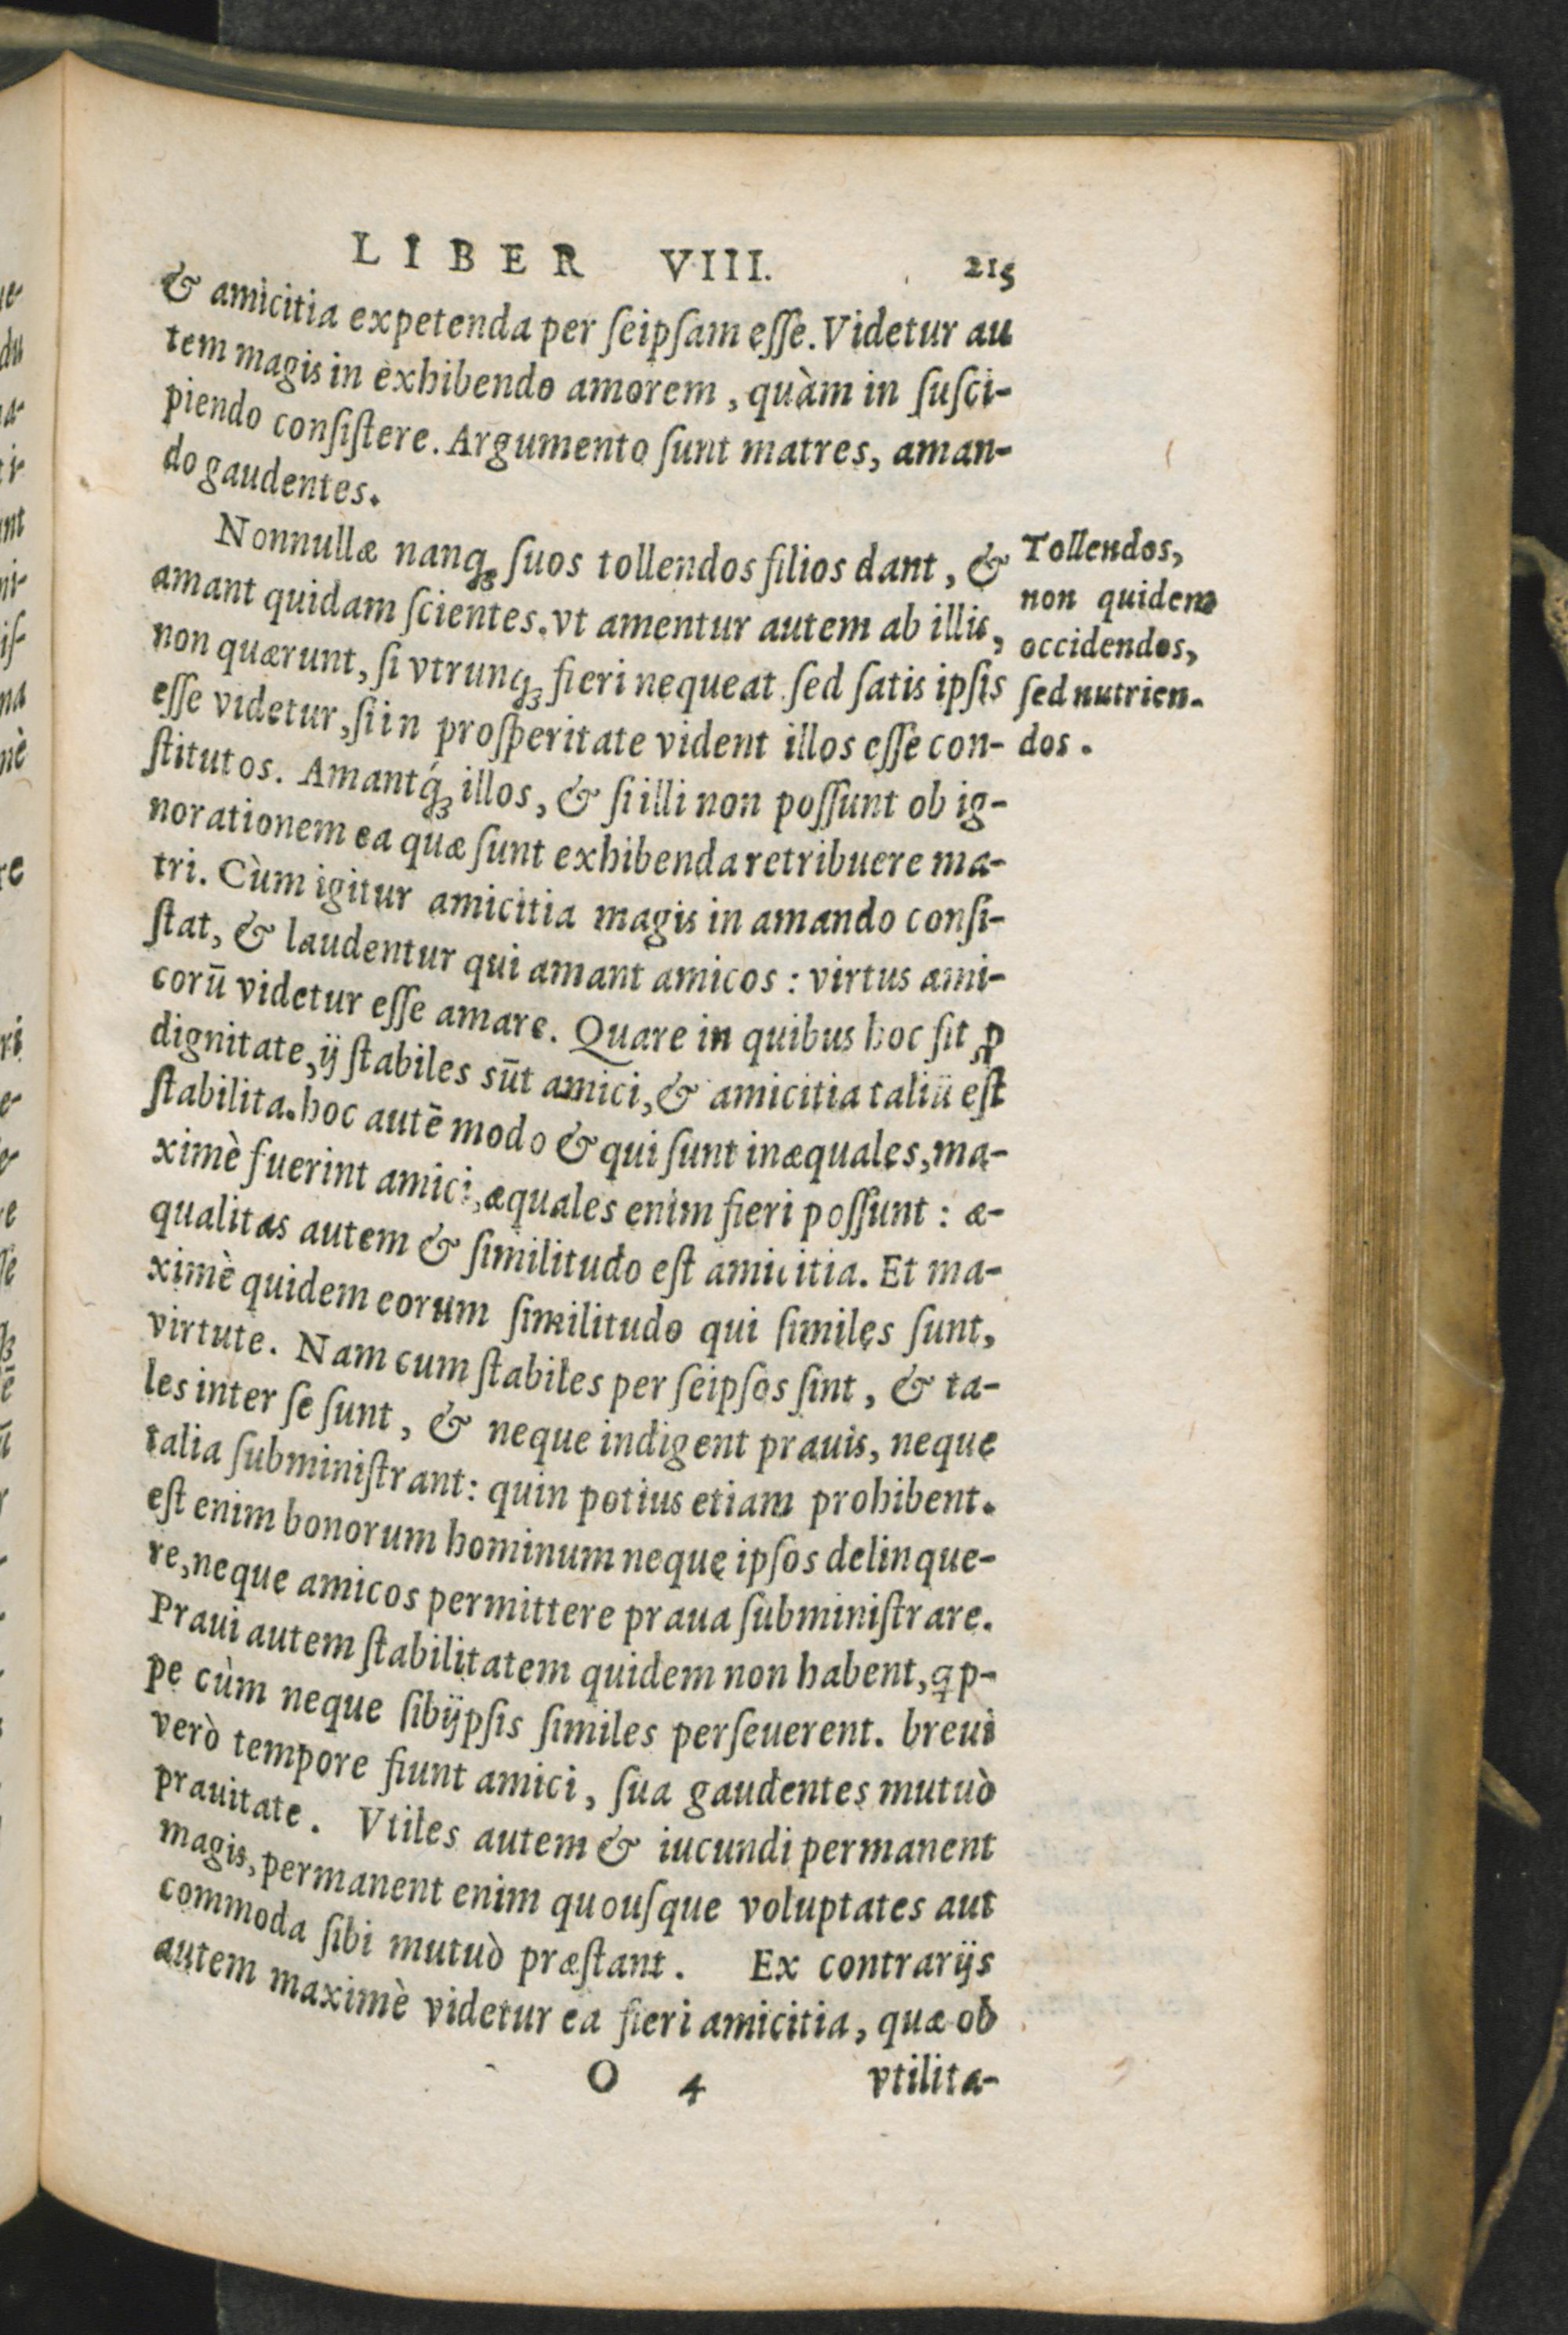 LIBER VIII. 215
& amicitia expetenda per ſeipſam eſſe. Videtur au
tem magis in exhibendo amorem, quàm in ſuſci-
piendo conſiſtere. Argumento ſunt matres, aman-
do gaudentes.
Nonnullæ nanq; ſuos tollendos filios dant, &
amant quidam ſcientes. vt amentur autem ab illis,
non quærunt, ſi vtrunq; fieri nequeat. ſed ſatis ipſis
eſſe videtur, ſi in proſperitate vident illos eſſe con-
ſtitutos. Amantq́; illos, & ſi illi non poſſunt ob ig-
norationem ea quæ ſunt exhibenda retribuere ma-
tri. Cùm igitur amicitia magis in amando conſi-
ſtat, & laudentur qui amant amicos: virtus ami-
corū videtur eſſe amare. Quare in quibus hoc ſit ꝓ
dignitate, ij ſtabiles sūt amici, & amicitia taliū eſt
ſtabilita. hoc autē modo & qui ſunt inæquales, ma-
ximè fuerint amici, æquales enim fieri poſſunt: æ-
qualitas autem & ſimilitudo eſt amicitia. Et ma-
ximè quidem eorum ſimilitudo qui ſimiles ſunt,
virtute. Nam cum ſtabiles per ſeipſos ſint, & ta-
les inter ſe ſunt, & neque indigent prauis, neque
talia ſubminiſtrant: quin potius etiam prohibent.
eſt enim bonorum hominum neque ipſos delinque-
re, neque amicos permittere praua ſubminiſtrare.
Praui autem ſtabilitatem quidem non habent, ꝗp-
pe cùm neque ſibijpſis ſimiles perſeuerent. breui
verò tempore fiunt amici, ſua gaudentes mutuò
prauitate. Vtiles autem & iucundi permanent
magis, permanent enim quouſque voluptates aut
commoda ſibi mutuò præſtant. Ex contrarijs
autem maximè videtur ea fieri amicitia, quæ ob
O 4 vtilita-
Tollendos,
non quidem
occidendos,
ſed nutrien-
dos.